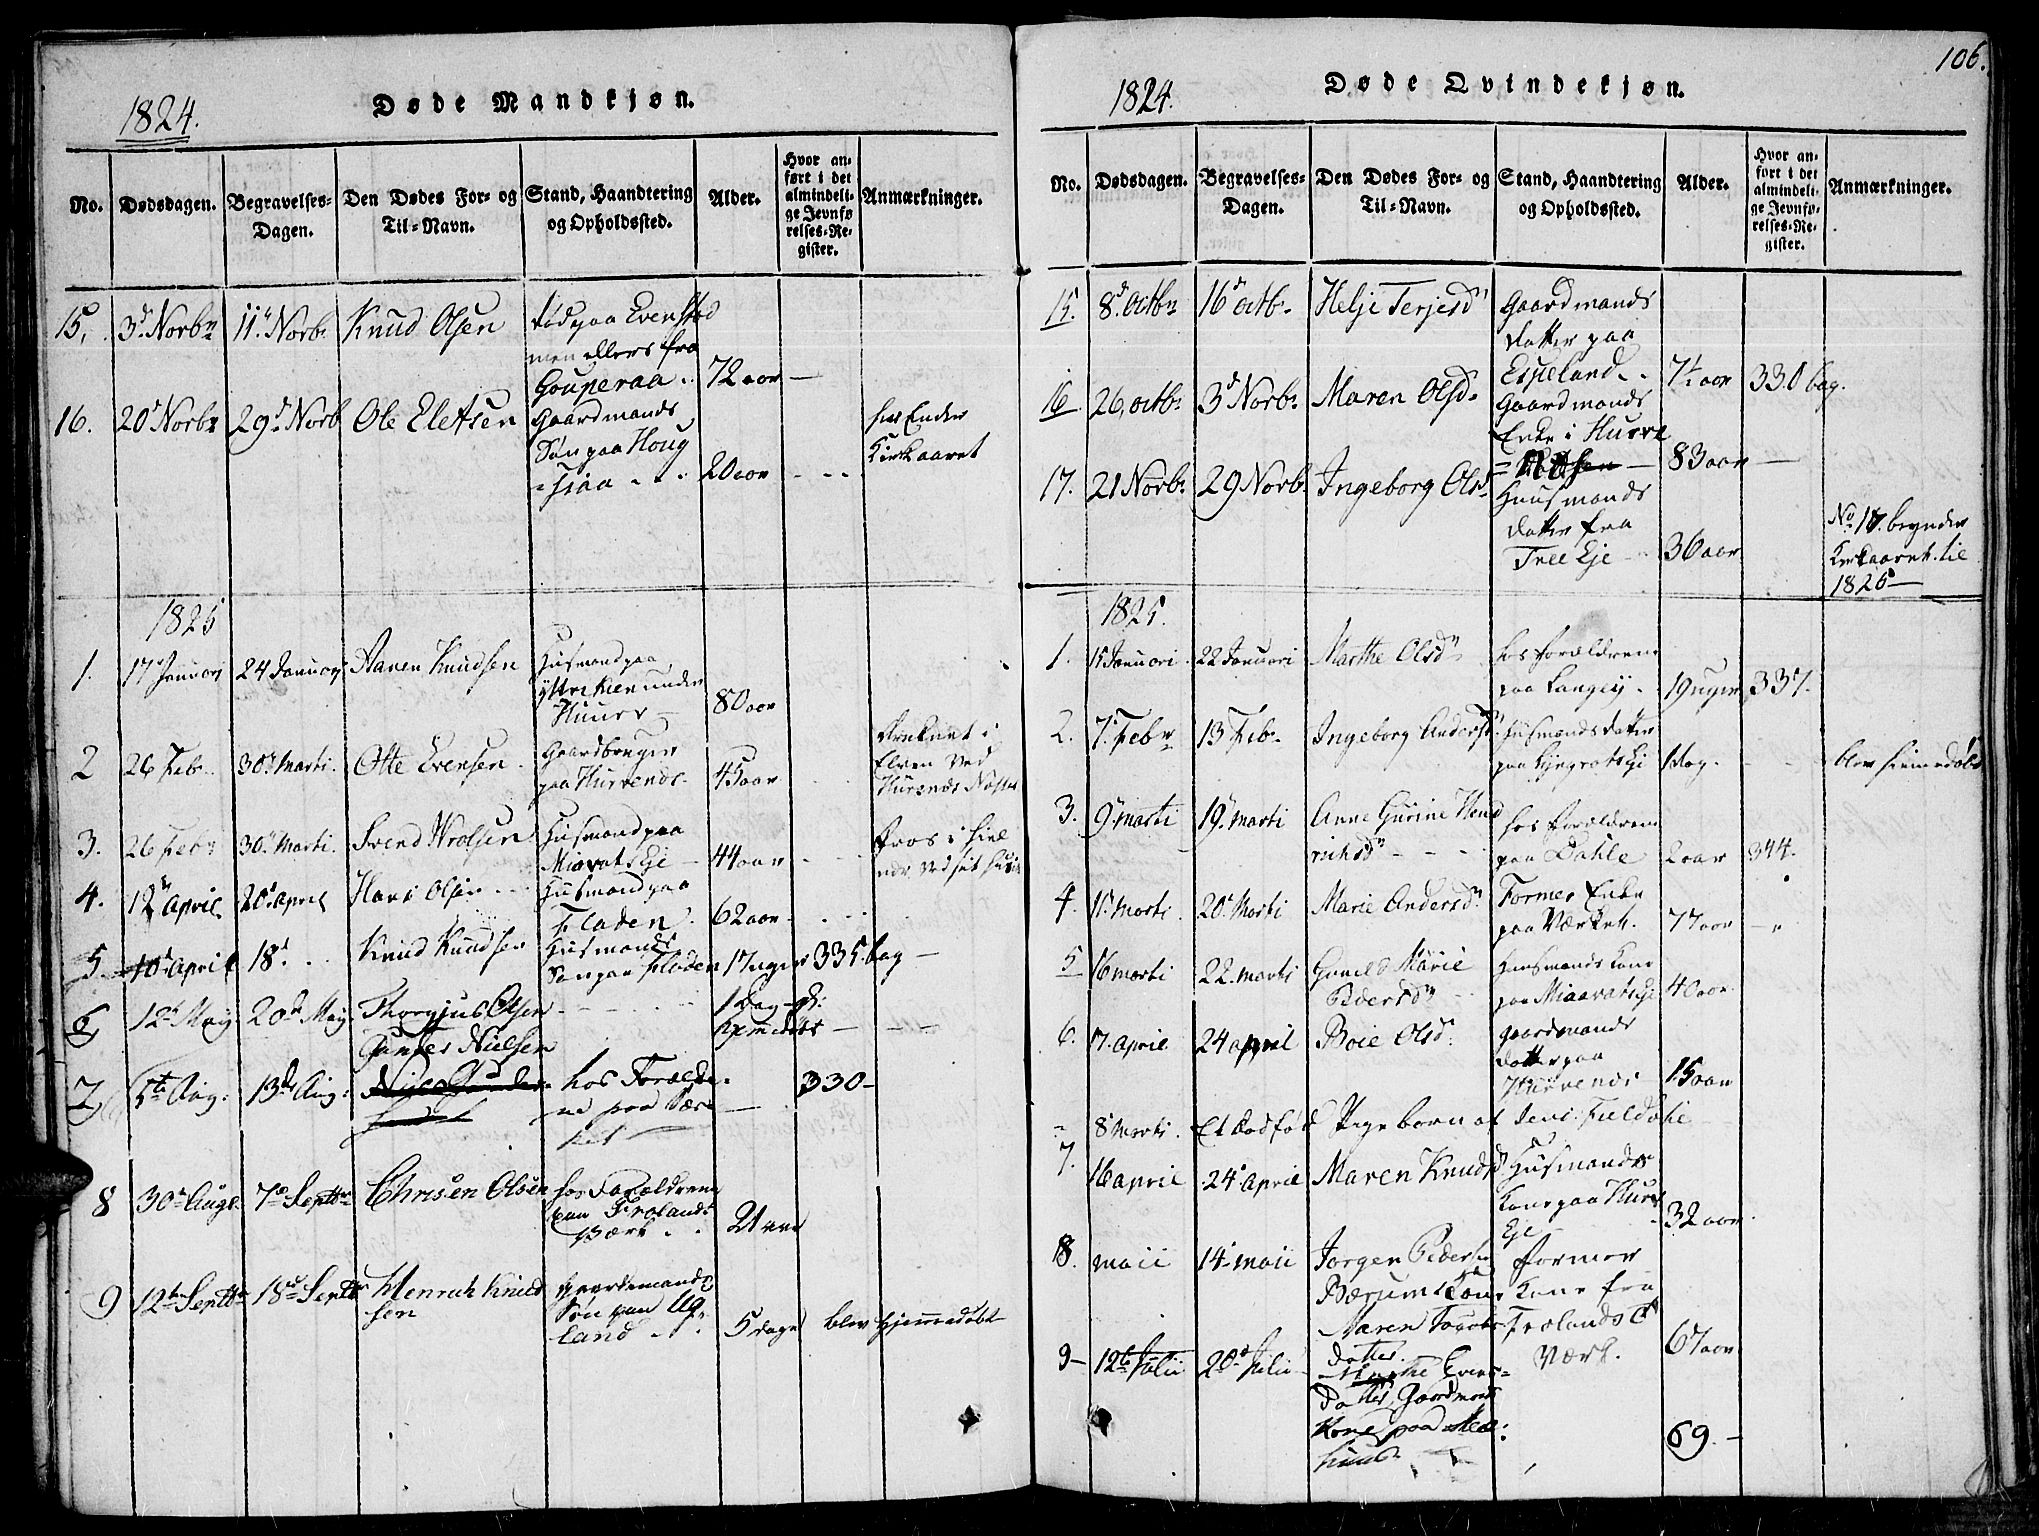 106.
1824.
Døde Mandkjøn.
No.
Dødsdagen.
Begravelses-
Dagen.
Den Dødes For- og
Til-Navn.
Stand, Haandtering
og Opholdssted.
Alder.
Hvor an-
ført i det
almindeli-
ge Jevnfø-
relses-Re-
gister.
Anmærkninger.
15. 3d Novbr 11te Novb. Knud Olsen
død paa Evenstad
men ellers fra
Gouperaa 72 aar —
16. 20d Novbr 29d Novb Ole Eletsen
Gaardmands
Søn paa Houg
20 aar
her Ender
Kirkaaret
1825
1. 17 Januari 24 Januari Aanen Knudsen
Husmand paa
under
Huurv — 80 aar
2 26 Feb. 30te Marti. Otte Evensen
Gaardbruger
paa Hurvende. 45 aar
Druknet i
Elven ved
Hurends
3. 26 Feb 30te Marti. Svend Wrolsen
Husmand paa
Miavats Eje — 44 aar
frøs i hiel
4. 12te April 20d April Hans Olsen
Husmand paa
Fladen 62 aar
5. 10d April 18d Knud Knudsen
Husmands
Søn paa Fladen 17 uger 335. bag —
6 12te May 20de May. Thorgjus Olsen
1 Dag
hjemedøbt
Gunder Nielsen
7 5te Aug: 13de Aug:
hos Foræld-
ne paa Vær-
ket
330 —
8 30te Augt. 7de Septbr Chrisen Olsen
hos Forældrene
paa Frolands
Værk 21 aar
9 12te Septbr 18de Septbr Henrich Knud
sen
Gaardemands
Søn paa Ug-
land 5 dage blev hjemmedøbt
1824.
Døde Qvindekjøn.
No.
Dødsdagen.
Begravelses-
Dagen.
Den Dødes For- og
Til-Navn.
Stand, Haandtering
og Opholdssted.
Alder.
Hvor an-
ført i det
almindeli-
ge Jevnfø-
relses-Re-
gister.
Anmærkninger.
15. 8d Octbr 16d octb. Helje Terjesd
Gaardmands
datter paa
Espeland 7½ aar 330 bag.
16 26 octb. 3d Novb. Maren Olsd.
Gaardmands
Enke i Hurve
83 aar —
17. 21 Novb. 29 Novb. Ingeborg Olsd
Huusmands
datter fra
Tree Eje 36 aar
No 17. begynder
Kirkaaret til
1825 —
1825.
1. 15 Januari 22 Januari Marthe Olsd
hos forældrene
paa Langøy. 19 uger 337.
2. 7. Feb. 13 Feb. Ingeborg Andersd.
Husmands datter
1 dag.
blev hiemedøbt
3. 9. marti 19. marti Anne Gurine Hend
richsd
hos forældrene
paa Dahle 2 aar 344.
4. 11. Marti 20d Marti Marie Andersd.
Former Enke
paa Værket. 77 aar
5 16 marti 22. marti Gunild Marie
Pedersd
Huusmands Kone
paa Miaavats Eje 40 aar.
6. 17. april 24 april Boie Olsd.
gaardmands
datter paa
Hurvends 15 aar
8 Marti. Et dødfød Pige barn af Jens Fieldalie
7. 16 april 24d April Maren Knudsd
Husmands
Kone paa Hurv
Eje 32 aar
18. maii 14. maii Jørgen Pedersen
Bærums Kone
Maren Jacobs-
Datter.
former
Kone fra
Frolands
Værk. 67 aar
9 — 12te Julii 20d Julii Marthe Evens-
Datter, Gaardmands
Kone paa
69. —